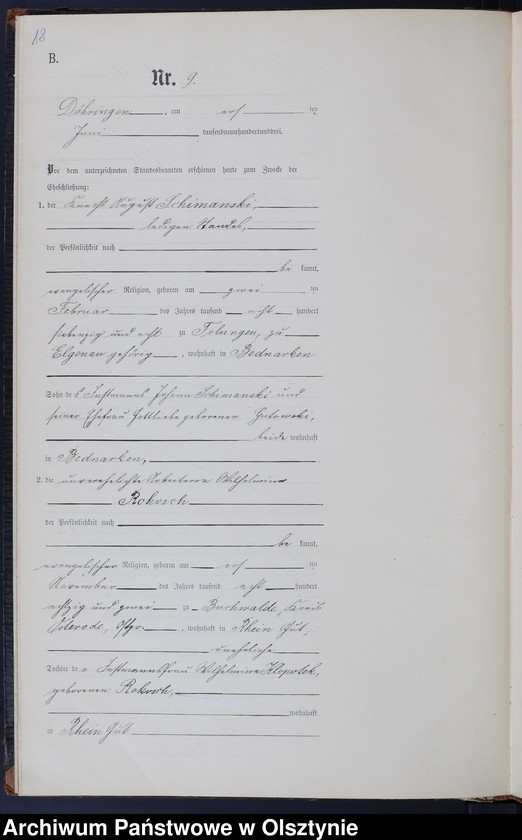 18
B.
Nr. 9.
Döhringen, am erſ ten
Juni tauſendneunhundertunddrei.
Vor dem unterzeichneten Standesbeamten erſchienen heute zum Zwecke der
Eheſchließung:
1. der Knecht August Schimanski,
ledigen Standes,
der Perſönlichkeit nach
be kannt,
evangelischer Religion, geboren am zwei ten
Februar des Jahres tauſend acht hundert
siebenzig und acht zu
Elgenau gehörig, wohnhaft in Bednarken
Sohn des Instmanns Johann Schimanski und
seiner Ehefrau Gottliebe geborenen Gutowski,
beide wohnhaft
in Bednarken,
2. die unverehelichte Arbeiterin Wilhelmine
Rokosch
der Perſönlichkeit nach
be kannt,
evangelischer Religion, geboren am erſ ten
November des Jahres tauſend acht hundert
achtzig und zwei zu Buchwalde, Kreis
Osterode, Ostpr., wohnhaft in Rhein Gut,
uneheliche
Tochter der Instmannsfrau Wilhelmine Klopotek,
geborenen Rokosch,
wohnhaft
in Rhein Gut
Archiwum Państwowe w Olsztynie